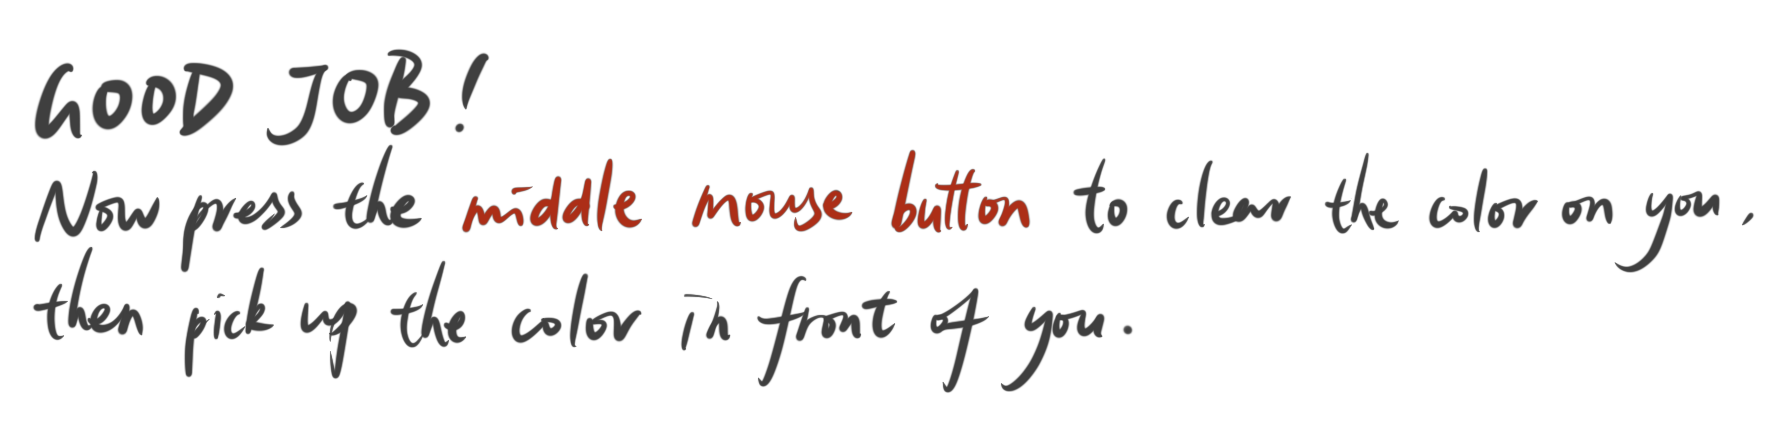 GOOD JOB!
Now press the middle mouse button to clear the color on you,
then pick up the color in front of you.